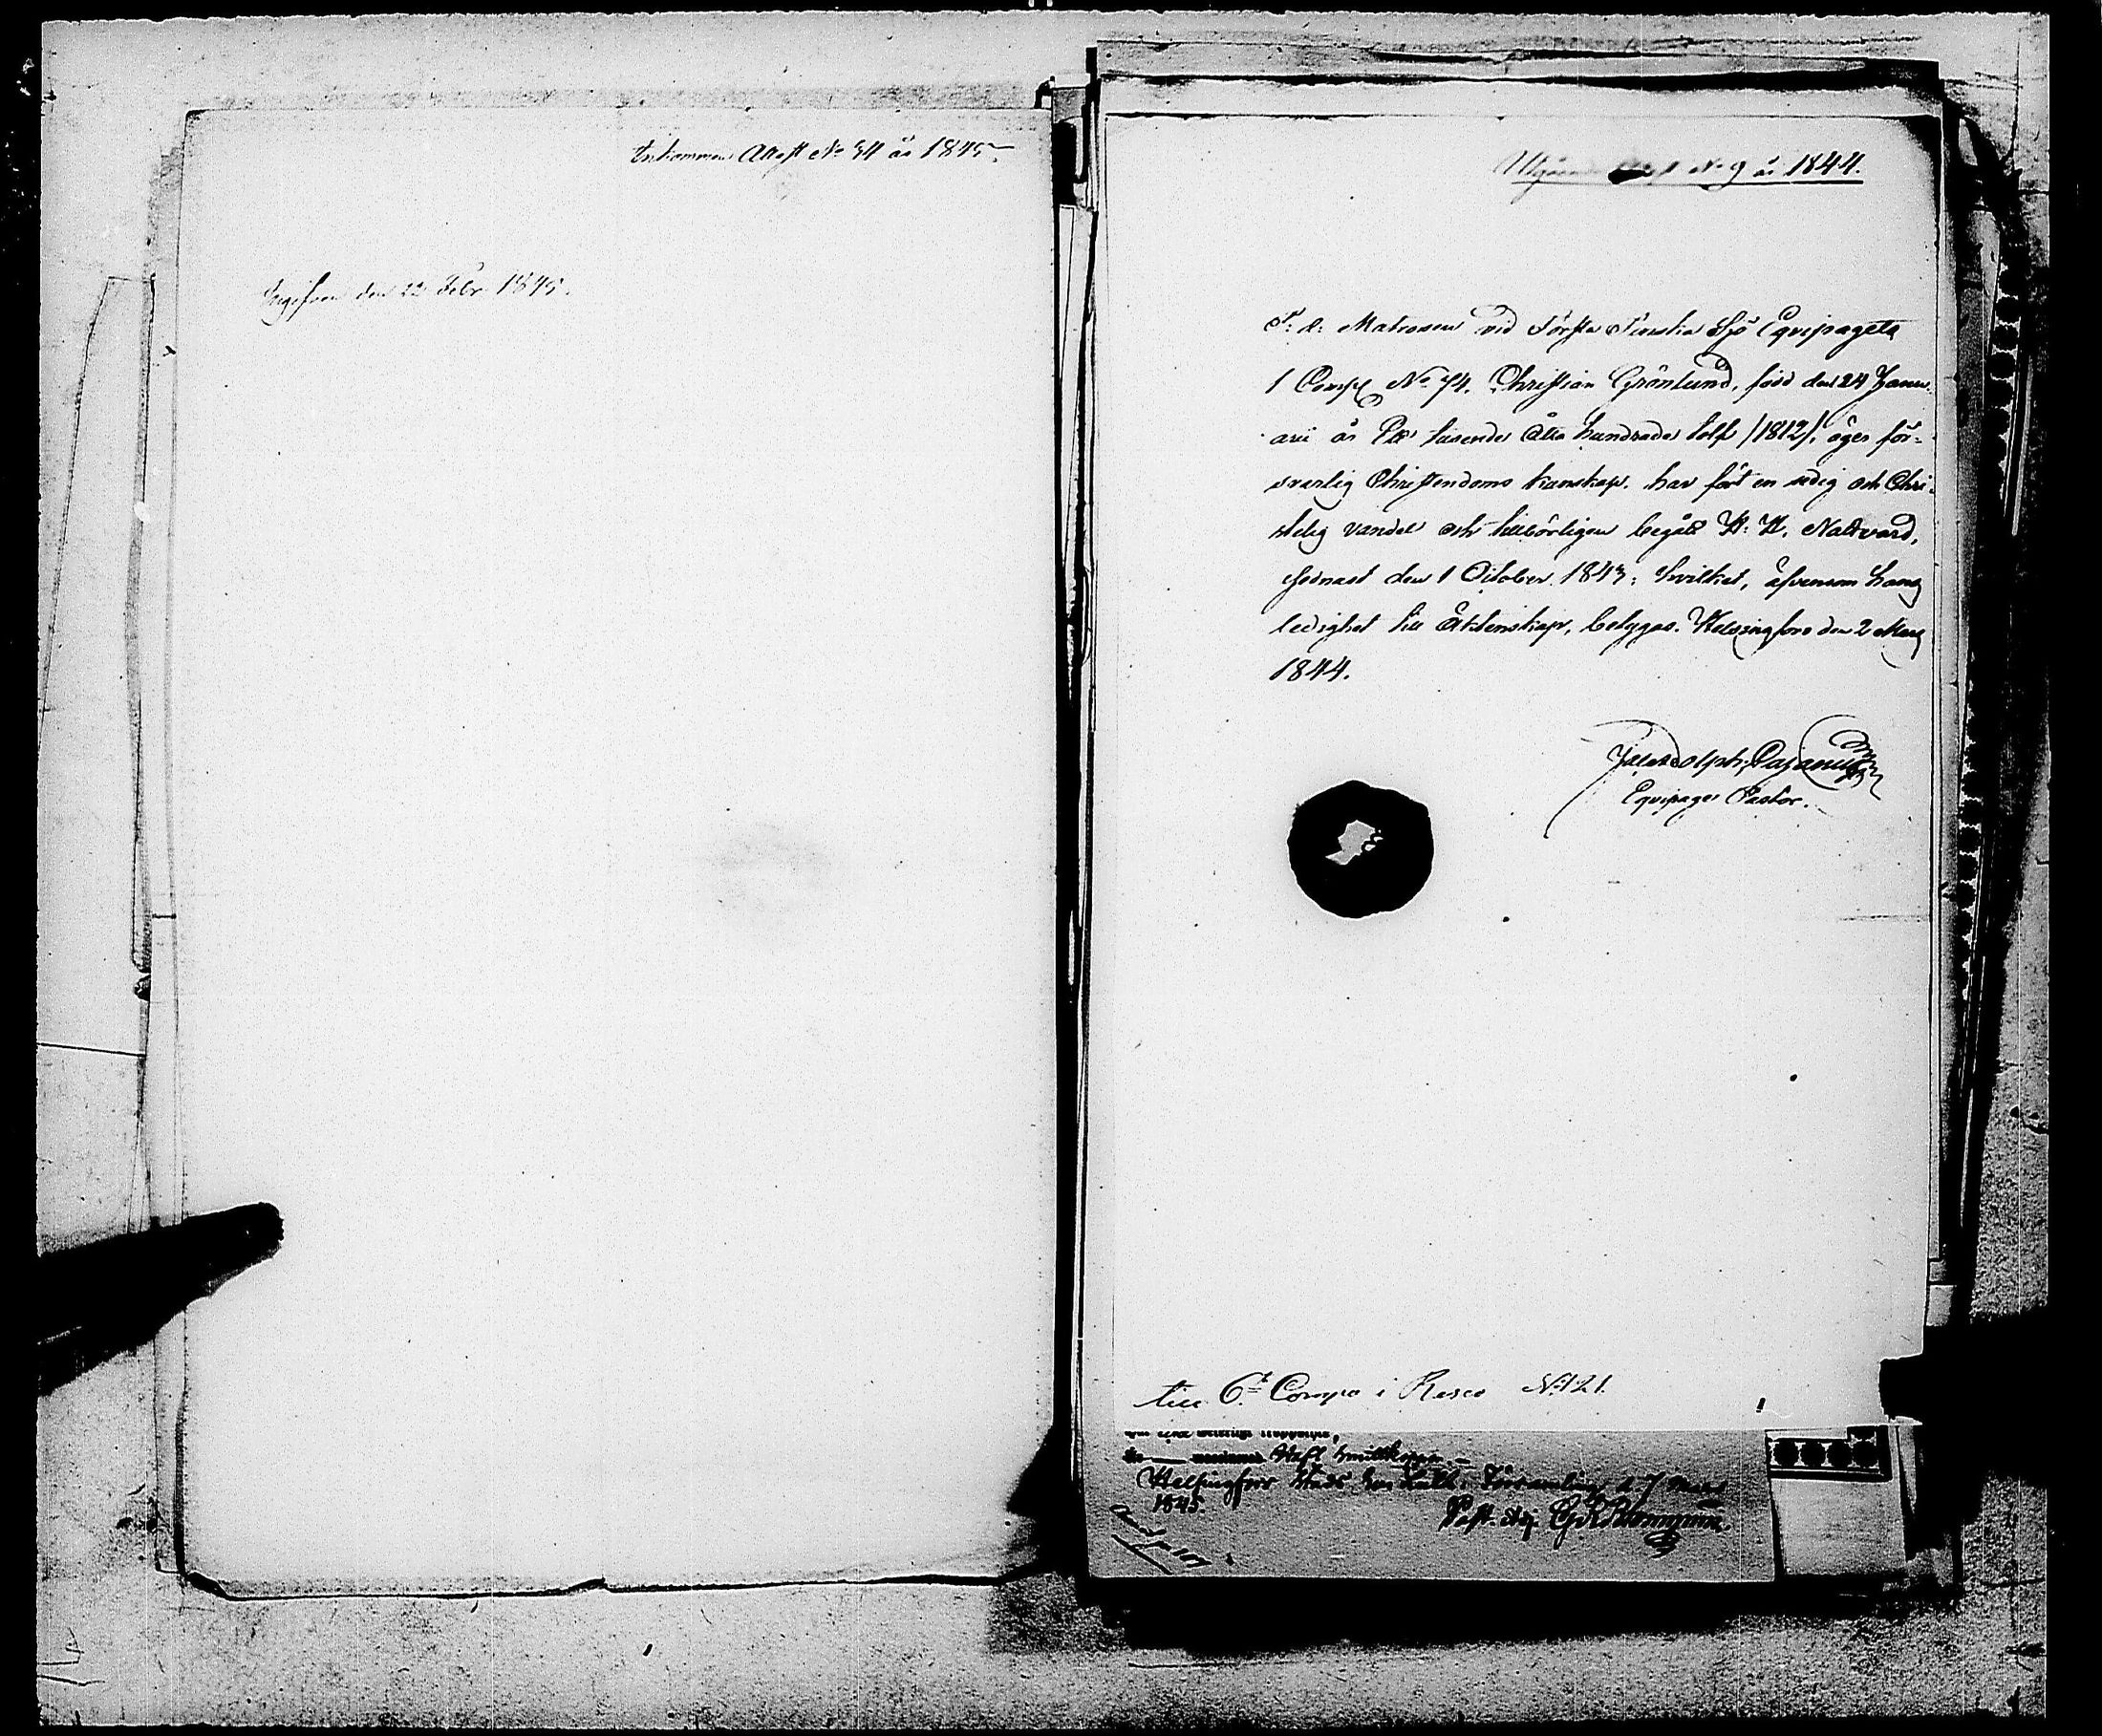 Inkommen Attest No 34 år 1845.
Ingifven den 22 Febr. 1845.
Utgående Attest No 9 år 1844.
F. d. Matrosen vid Första Finska Sjö Equipagets
1 Comp No 74. Christian Grönlund, född den 24 Janu-
arii år Ett tusende åtta hundrade tolf /1812/. äger för-
svarlig Christendoms kunskap. har fört en sedig och Chri-
stelig vandel och tillbörligen begått H. H. Nattvard,
sednast den 1 October 1843; hvilket, äfvensom hans
ledighet till äktenskap, betygas. Helsingfors den 2 Mars
1844.
Adolph
Equipage Pastor.
till 6te Comp i Resco No 121.
Helsingfors Stads Församling d 7 Mars
1845.
Past. Adj.